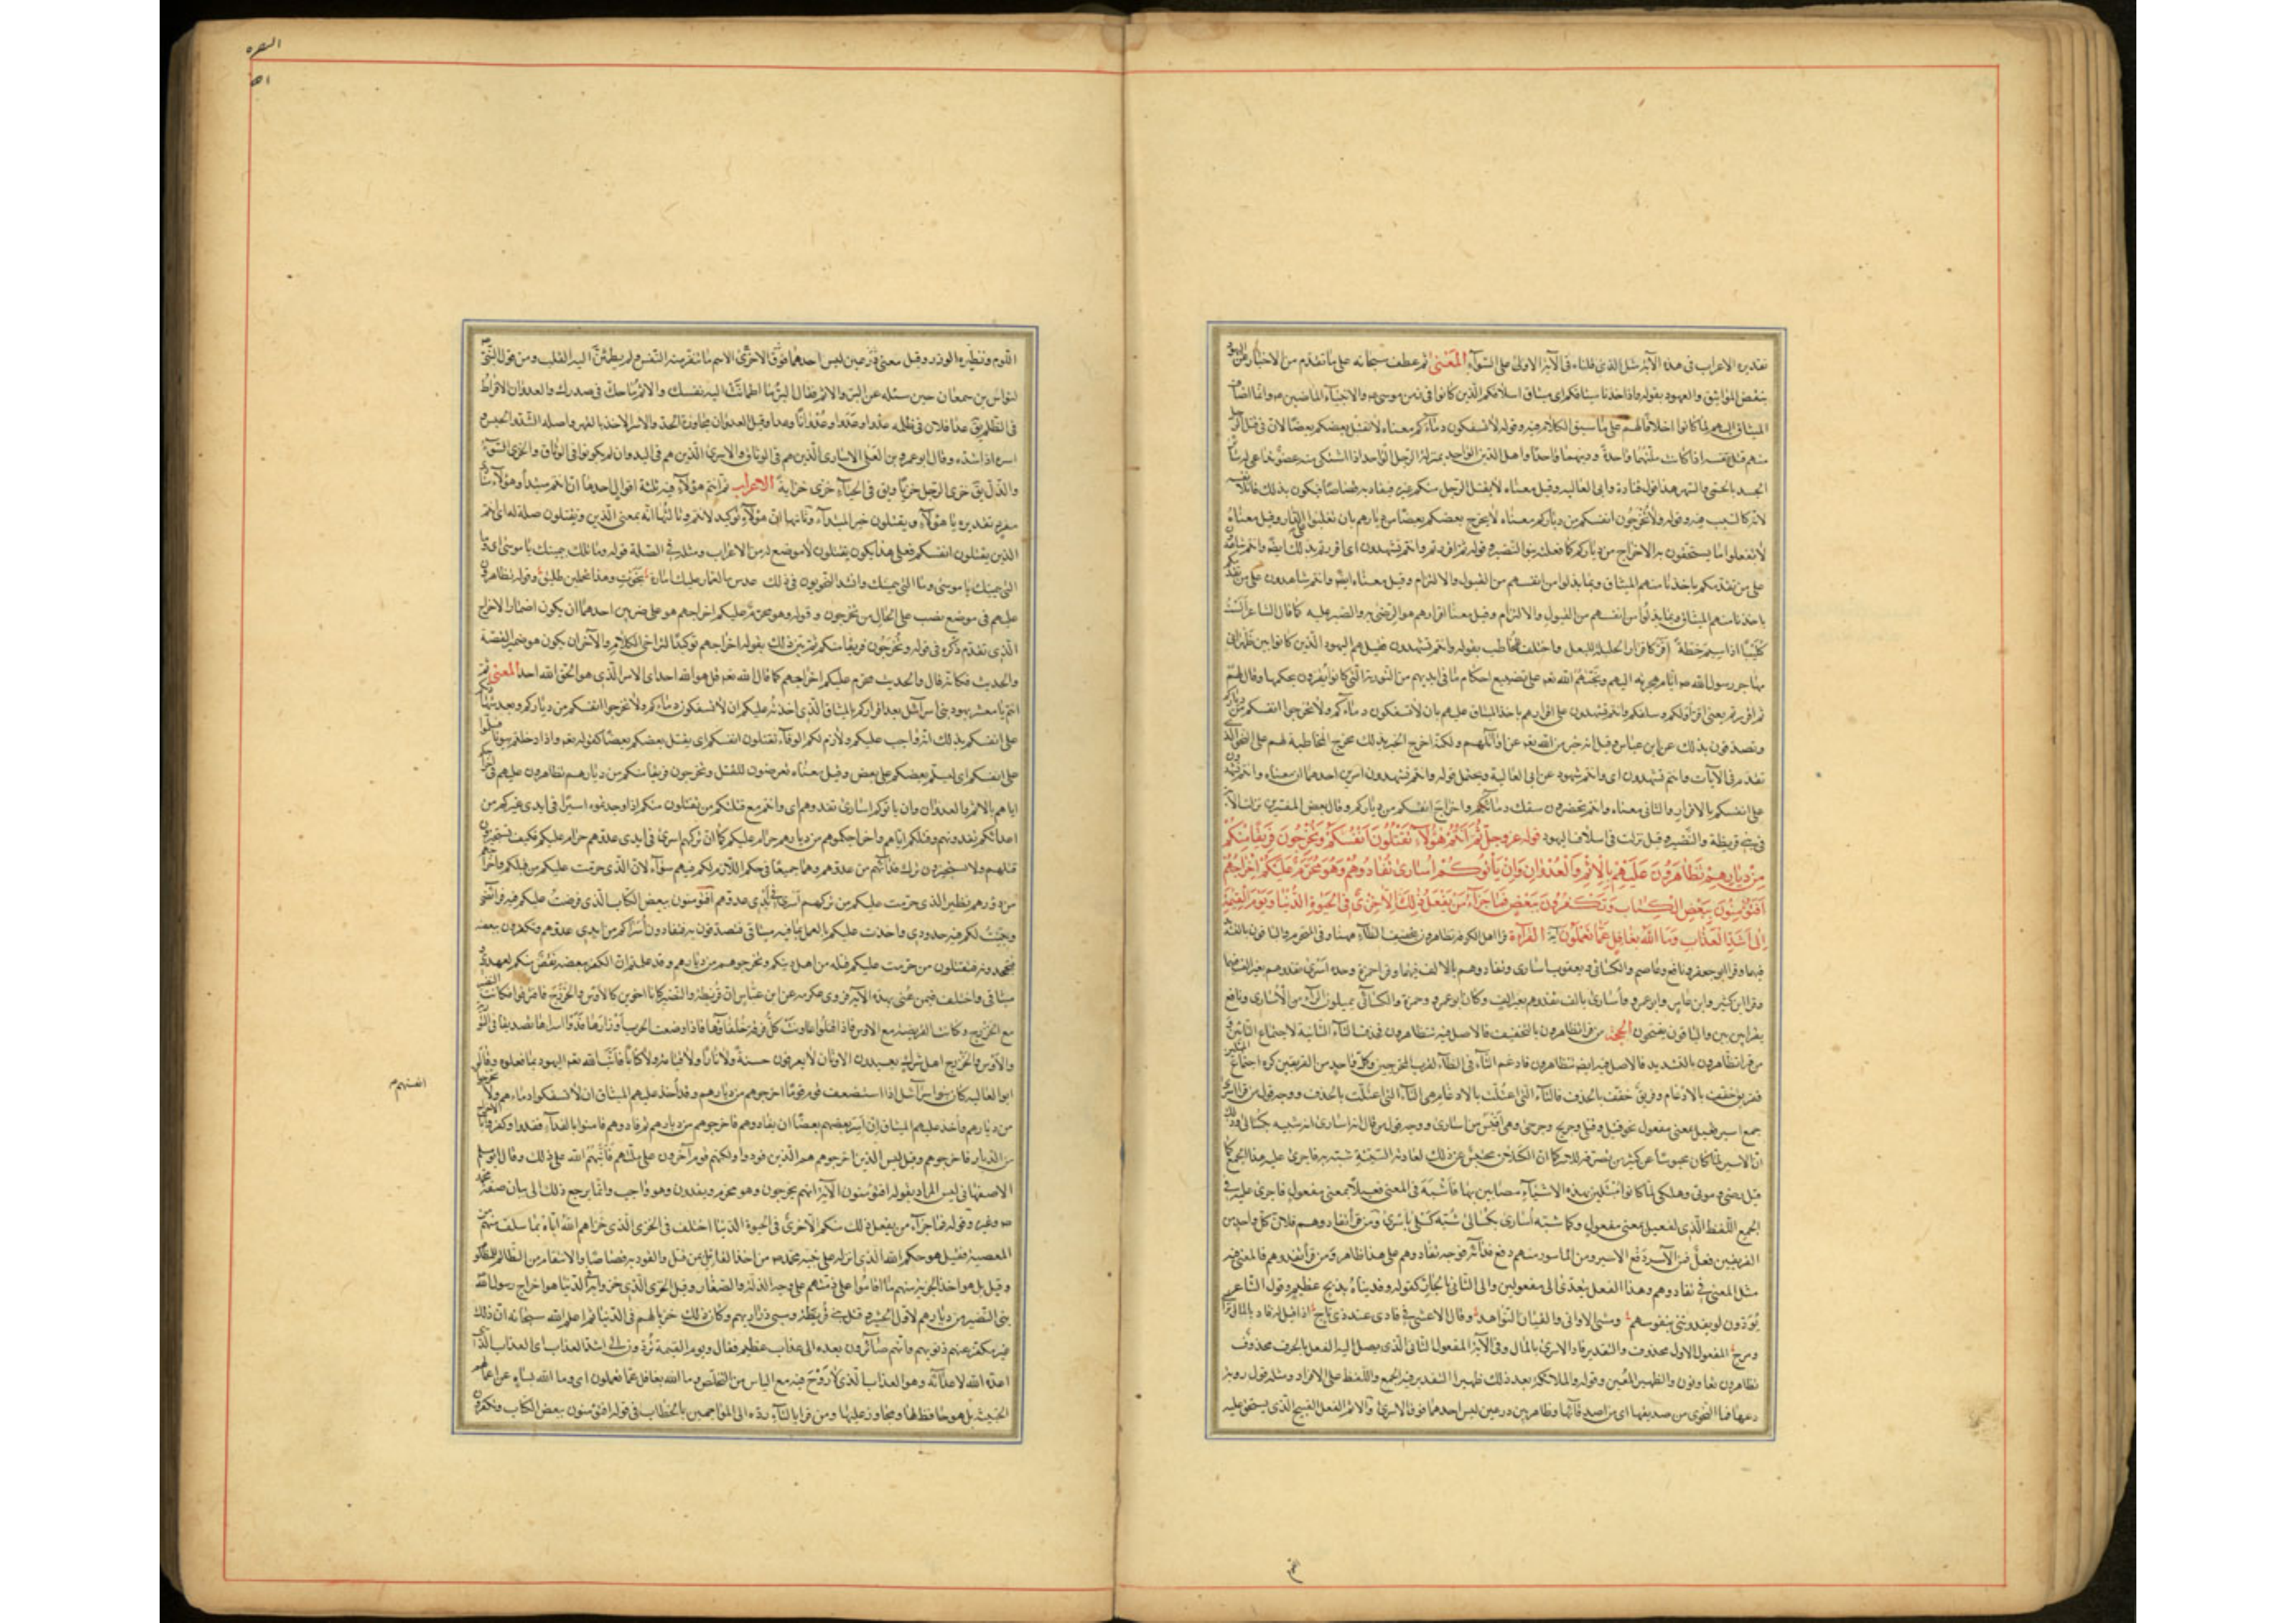 تقديره الاعراب فى هذه الآية مثل الذى قلناه فى الآية الاولى على السّوآء المعنى ثم عطف سبحانه على ما تقدم من الاخبار عن اليهود
بنقض المواثيق والعهود بقوله واذ اخذنا ميثاقكم اى ميثاق اسلافكم الّذين كانوا فى زمن موسى والانبيآء الماضين وانّما اضاف
الميثاق اليهم لمّا كانوا اخلافا لهم على ما سبق الكلام فيه وقوله لا تسفكون دمآءكم معناه لا يقتل بعضكم بعضًا لانّ فى قتل الرجل
منهم قتل نفسه اذا كانت ملّتهما واحدة ودينهما واحدًا واهل الدّين الواحد بمنزلة الرّجل الواحد اذا اشتكى منه عضو تداعى له سآئر
الجسد بالحمّى والسّهر هذا قول قتادة وابى العالية وقيل معناه لا يقتل الرّجل منكم غيره فيقاد به قصاصًا فيكون بذلك قاتلا نفسه
لانّه كالسّبب فيه وقوله ولا تُخرجُون انفسكم من دياركم معناه لا يخرج بعضكم بعضًا من ديارهم بان تغلبوا على الدّار وقيل معناه
لا تفعلوا ما يستحقّون به الاخراج من دياركم كما فعلته بنو النّضير وقوله ثم اقررتم وانتم تشهدون اى اقررتم بذلك ايضًا وانتم شاهدون
على من تقدّمكم باخذنا منهم الميثاق وبما بذلوا من انفسهم من القبول والالتزام وقيل معناه ايضًا وانتم شاهدون على من تقدّمكم
باخذنا منهم الميثاق وبما بذلوا من انفسهم من القبول والالتزام وقيل معنا اقرارهم هو الرّضى به والصّبر عليه كما قال الشاعر ألستَ
كُليبيًّا اذا سيم خطّة أقرّ كاقرار الحليلة للبعل واختلف المخاطب بقوله وانتم تشهدون فقيل هم اليهود الّذين كانوا بين ظهرانى
مهاجر رسول الله ص ايّام هجرته اليهم وبّخهم الله تعم على تضييع احكام ما فى ايديهم من التّورية الّتى كانوا يقرّون بحكمها وقال لهم
ثم اقررتم يعنى اقرّ اوّلكم وسلفكم وانتم تشهدون على اقرارهم باخذ الميثاق عليهم بان لا تسفكون دمآءكم ولا تخرجوا انفسكم من دياركم
وتصدّقون بذلك عن ابن عباس وقيل انّه خبر من الله تعم عن اوآئلهم ولكنّه اخرج الخبر بذلك مخرج المخاطبة لهم على النحو الذى
تقدّم فى الآيات وانتم تشهدون اى وانتم شهود عن ابى العالية ويحتمل قوله وانتم تشهدون امرين احدهما ان معناه وانتم تشهدون
على انفسكم بالاقرار والثانى معناه وانتم تحضرون سفك دمآئكم واخراج انفسكم من دياركم وقال بعض المفسّرين نزلت الآية
فى بنى قريظة والنّضير وقيل نزلت فى اسلاف اليهود قوله عز وجل ثُمَّ اَنْتُمْ هٰؤُلَاءِ تَقْتُلُونَ اَنْفُسَكُمْ وَتُخْرِجُونَ فَرِيقًا مِنْكُمْ
مِنْ دِيَارِهِمْ تَظَاهَرُونَ عَلَيْهِمْ بِالْاِثْمِ وَالْعُدْوَانِ وَاِنْ يَأْتُوكُمْ اُسَارىٰ تُفَادُوهُمْ وَهُوَ مُحَرَّمٌ عَلَيْكُمْ اِخْرَاجُهُمْ
اَفَتُؤْمِنُونَ بِبَعْضِ الْكِتَابِ وَتَكْفُرُونَ بِبَعْضٍ فَمَا جَزَآءُ مَنْ يَفْعَلُ ذٰلِكَ مِنْكُمْ اِلَّا خِزْىٌ فِى الْحَيٰوةِ الدُّنْيَا وَيَوْمَ الْقِيٰمَةِ يُرَدُّونَ
اِلىٰ اَشَدِّ الْعَذَابِ وَمَا اللهُ بِغَافِلٍ عَمَّا تَعْمَلُونَ آية القرآءة قرأ اهل الكوفة تظاهرون بتخفيف الظّآء ههنا وفى التحريم والباقون بالتشديد
فيهما وقرأ ابو جعفر ونافع وعاصم والكسائى ويعقوب اسارى وتفادوهم بالالف فيهما وقرأ حمزة وحده اسرى تفدوهم بغير الف فيهما
وقرأ ابن كثير وابن عامر وابو عمرو اسارى بالف تفدوهم بغير الف وكان ابو عمرو وحمزة والكسآئى يميلون الرآء من الاسارى ونافع
يقرأ بين بين والباقون يفخمون الحجة من قرأ تظاهرون بالتخفيف فالاصل فيه تتظاهرون فحذف التّآء الثانية لاجتماع التائين و
من قرأ تظّاهرون بالتشديد فالاصل فيه ايضم تتظاهرون فادغم التّآء فى الظّآء لقرب المخرجين وكلّ واحد من الفريقين كره اجتماع المثلين
ففريق خفّف بالادغام وفريق خفّف بالحذف فالتّآء الّتى اعتلّت بالادغام هى التّآء الّتى اعتلّت بالحذف ووجه قول من قرأ اسرى
جمع اسير فعيل بمعنى مفعول نحو قتيل وقتلى وجريح وجرحى وهى اقيس من اسارى ووجه قول من قال اسارى انه شبّه بكسالى وذلك
انّ الاسير لمّا كان محبوسًا عن كثير من تصرّفه للاسر كما ان الكسلان محتبس عن ذلك لعادته السّيّئة شبّه به فاجرى عليه هذا الجمع كما
قيل مرضى وموتى وهلكى لمّا كانوا مبتلين بهذه الاشيآء مصابين بها فاشبه فى المعنى فعيلاً بمعنى مفعول فاجرى عليه فى
الجمع اللّفظ الّذى لفعيل بمعنى مفعول وكما شبّه أسارى بكسالى شُبّه كسلى بأسرى ومَن قرأ تفادوهم فلانّ كلّ واحد من
الفريقين فعل فمن الآسر دَفعُ الاسير ومن المأسور منهم دفع فدآئه فوجه تفادوهم على هذا ظاهر ومن قرأ تفدوهم فالمعنى فيه
مثل المعنى فى تفادوهم وهذا الفعل يتعدّى الى مفعولين والى الثّانى بالجار كقوله وفديناهُ بذبح عظيم وقول الشّاعر
يودّون لو يفدوننى بنفوسهم ومثنى الاواقى والقيان النّواهد وقال الاعشى فى فادى عند ذى تاج اذا قيل له فاد بالمال تراخى
ومزح المفعول الاول محذوف والتقدير فاد الاسرى بالمال وفى الآية المفعول الثانى الّذى يصل اليه الفعل بالحرف محذوف
تظاهرون تعاونون والظّهير المُعين وقوله والملائكة بعد ذلك ظهير التّقدير فيه الجمع واللّفظ على الافراد ومثله قول رؤبة
دعها فما النّحوى من صديقها اى من اصدقآئها وظاهر بين درعين لبس احدهما فوق الاخرى والاثم الفعل القبيح الّذى يستحق عليه
اللّوم ونظيره الوزر وقيل معنى الاثم ما تنفر منه النّفس ولم يطمئنّ اليه القلب ومن قول النّبى
لنواس بن سمعان حين سئله عن البرّ والاثم فقال البرّ ما اطمأنّت اليه نفسك والاثم ما حكّ فى صدرك والعدوان الافراط
فى الظّلم يق عدا فلان فى ظلمه عدوا وعدوّا وعُدوانًا وعدآء وقيل العدوان مجاوزة الحدّ والاسر الاخذ بالقهر واصله الشّدّ والحبس
اسره اذا شدّه وقال ابو عمرو بن العلى الاسارى الّذين هم فى الوثاق والاسرى الّذين هم فى اليد وان لم يكونوا فى الوثاق والخزى السّوء
والذّلّ يق خزى الرّجل خزيًا ويق فى الحيآء خزى خزاية الاعراب ثم انتم هؤلآء فيه ثلثة اقوال احدها انّ انتم مبتدأ وهؤلآء منادى
مفرد تقديره يا هؤلآء ويقتلون خبر المبتدآء وثانيها انّ هؤلآء توكيد لانتم وثالثها انّه بمعنى الّذين وتقتلون صلة له اى انتم
الّذين تقتلون انفسكم فعلى هذا يكون يقتلون لا موضع له من الاعراب ومثله فى الصّلة قوله وما تلك بيمينك يا موسى اى وما
الّتى بيمينك يا موسى وما الّتى بيمينك وانشد النّحويون فى ذلك عدس ما لعبّاد عليك امارة نجوتِ وهذا تحملين طليق وقوله تظاهرون
عليهم فى موضع نصب على الحال من تخرجون وقوله وهو محرّم عليكم اخراجهم هو على ضربين احدهما ان يكون اضمار الاخراج
الّذى تقدّم ذكره فى قوله وتُخرجُون فريقا منكم ثم بيّن ذلك بقوله اخراجهم توكيدًا لتراخى الكلام والآخر ان يكون هو ضمير القصّة
والحديث فكانّه قال والحديث محرّم عليكم اخراجهم كما قال الله تعم قل هو الله احد اى الامر الّذى هو الحقّ الله احد المعنى ثم
انتم يا معشر يهود بنى اسرآئيل بعد اقراركم بالميثاق الّذى اخذته عليكم ان لا تسفكون دمآءكم ولا تخرجوا انفسكم من دياركم وبعد شهادتكم
على انفسكم بذلك انّه واجب عليكم ولازم لكم الوفآء تقتلون انفسكم اى يقتل بعضكم بعضًا كقوله تعم واذا دخلتم بيوتًا فسلّموا
على انفسكم اى ليسلّم بعضكم على بعض وقيل معناه تعرضون للقتل وتخرجون فريقا منكم من ديارهم تظاهرون عليهم فى اخراجكم
ايّاهم بالاثم والعدوان وان ياتوكم اسارى تفدوهم اى وانتم مع قتلكم من تقتلون منكم اذا وجدتموه اسيرًا فى ايدى غيركم من
اعدآئكم تفدونهم وقتلكم ايّاهم واخراجكموهم من ديارهم حرام عليكم كما انّ تركهم اسرى فى ايدى عدوّهم حرام عليكم فكيف تستجيزون
قتلهم ولا تستجيزون ترك فدآئهم من عدوّهم وهما جميعًا فى حكم اللّازم لكم فيهم سوآء لانّ الّذى حرّمت عليكم من قتلكم واخراجهم
من دورهم نظير الذى حرّمت عليكم من تركهم اسرى فى ايدى عدوّهم افتؤمنون ببعض الكتاب الّذى فرضت عليكم فيه فرآئضى
وبيّنتُ لكم فيه حدودى واخذت عليكم بالعمل بما فيه ميثاقى فتصدّقون به فتفادون أُسرآكم من ايدى عدوّهم وتكفرون ببعضه
فتجحدونه فتقتلون من حرّمت عليكم قتله من اهل دينكم وتخرجوهم من ديارهم وقد علمتم انّ الكفر ببعضه نقضٌ منكم لعهدى و
ميثاقى واختلف فيمن عُنى بهذه الآية فروى عكرمه عن ابن عبّاس انّ قريظة والنّضير كانا اخوين كالاوس والخزرج فافترقوا فكانت النضير
مع الخزرج وكانت القريضة مع الاوس فاذا اقتتلوا عاونت كلّ فرقة خلفآؤها فاذا وضعت الحرب اوزارها فدّوا اسراها تصديقا لما فى التّورية
والاوس والخزرج اهل شرك يعبدون الاوثان لا يعرفون جنّة ولا نارًا ولا قيامة ولا كتابًا فأنّب الله تعم اليهود بما فعلوه وقال
ابو العالية كان بنو اسرآئيل اذا استضعف قوم قومًا اخرجوهم من ديارهم وقد أُخذ عليهم الميثاق ان لا تسفكوا دمآءهم ولا يخرجوا
انفسهم م
من ديارهم وأُخذ عليهم الميثاق إن أسر بعضهم بعضًا ان يفادوهم فاخرجوهم من ديارهم ثم فادوهم فآمنوا بالفدآء ففدوا وكفروا بالاخراج
من الديار فاخرجوهم وقيل ليس الّذين اخرجوهم هم الّذين فودوا ولكنّهم قوم آخرون على ملّتهم فأنّبهم الله على ذلك وقال ابو مسلم
الاصفهانى ليس المراد بقوله افتؤمنون الآية انّهم يخرجون وهو محرّم ويفدون وهو واجب وانّما يرجع ذلك الى بيان صفة محمّد
ص وغيره وقوله فما جزآء من يفعل ذلك منكم الّا خزى فى الحيوة الدنيا اختلف فى الخزى الّذى خزاهم الله ايّاه بما سلف منهم من
المعصية فقيل هو حكم الله الّذى انزله على نبيّه محمّد ص من اخذ القاتل بمن قتل والقود به قصاصًا والانتقام من الظّالم للمظلوم
وقيل بل هو اخذ الجزية منهم ما اقاموا على ذمّتهم على وجه الذلّة والصّغار وقيل الخزى الّذى خزوا به فى الدّنيا هو اخراج رسول الله
بنى النّضير من ديارهم لاوّل الحشر وقتل بنى قُريظة وسبى ذراريهم وكان ذلك خزيا لهم فى الدّنيا ثم اعلم الله سبحانه انّ ذلك
غير مكفّر عنهم ذنوبهم وانّهم صآئرون بعده الى عذاب عظيم فقال ويوم القيمة يُردّون الى اشدّ العذاب اى العذاب الّذى
اعدّه الله لاعدآئه وهو العذاب الّذى لا رَوْحَ فيه مع الياس من التخلّص وما الله بغافل عمّا تعملون اى وما الله بساه عن اعمالهم
الخبيثة بل هو حافظ لها ومجاز عليها ومن قرأ بالتّآء ردّه الى المواجهين بالخطاب فى قوله افتؤمنون ببعض الكتاب وتكفرون